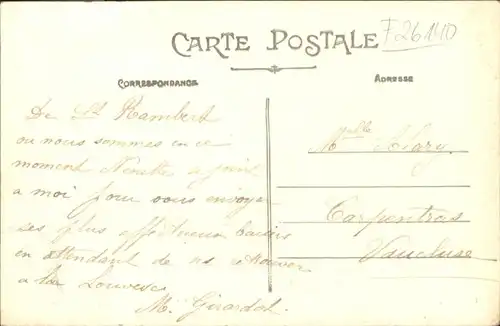 F 26110
CARTE POSTALE
CORRESPONDANCE
ADRESSE
De St Rambert
ou nous sommes en ce
moment se joint
a moi pour vous envoyer
ses plus affectueux baisers
en attendant de ns retrouver
a la Louvesc
M. Girardot
Melle Alary
Carpentras
Vaucluse